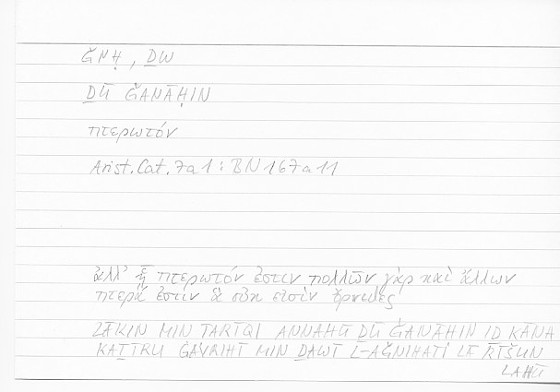 ǦNḤ, ḎW
ḎŪ ǦANĀḤIN
πτερωτόν
Arist. Cat. 7a1 : BN 167a11
ἀλλ' ᾗ πτερωτόν ἐστιν πολλῶν γὰρ καὶ ἄλλων
πτερά ἐστιν ἃ οὐκ εἰσὶν ὄρνιθες
LĀKIN MIN ṬARĪQI ANNAHŪ ḎŪ ǦANĀḤIN IḎ KĀNA
KAṮĪRU ĠAYRIHĪ MIN ḎAWĪ L-AǦNIḤATI LĀ RĪŠUN
LAHŪ